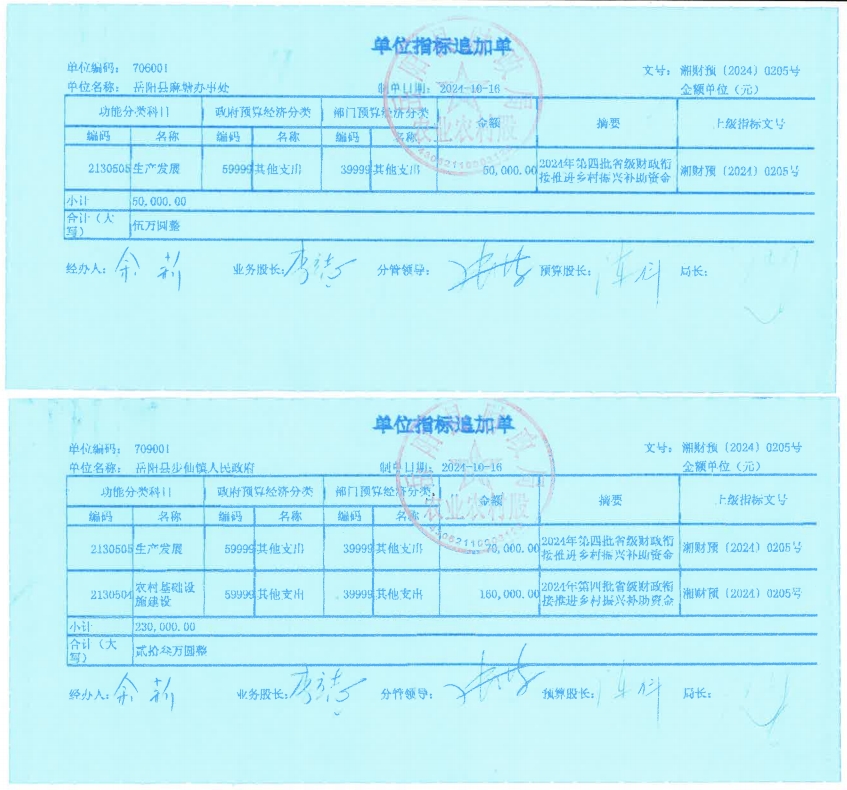 单位指标追加单
单位编码： 706001 文号： 湘财预〔2024〕0205号
单位名称： 岳阳县麻塘办事处 制单日期： 2024-10-16 金额单位（元）
功能分类科目 政府预算经济分类 部门预算经济分类 金额 摘要 上级指标文号
编码 名称 编码 名称 编码 名称
2130505 生产发展 59999 其他支出 39999 其他支出 50,000.00 2024年第四批省级财政衔接推进乡村振兴补助资金 湘财预〔2024〕0205号
小计 50,000.00
合计（大写） 伍万圆整
经办人： 业务股长： 分管领导： 预算股长： 局长：
农业农村股
单位指标追加单
单位编码： 709001 文号： 湘财预〔2024〕0205号
单位名称： 岳阳县步仙镇人民政府 制单日期： 2024-10-16 金额单位（元）
功能分类科目 政府预算经济分类 部门预算经济分类 金额 摘要 上级指标文号
编码 名称 编码 名称 编码 名称
2130505 生产发展 59999 其他支出 39999 其他支出 70,000.00 2024年第四批省级财政衔接推进乡村振兴补助资金 湘财预〔2024〕0205号
2130504 农村基础设施建设 59999 其他支出 39999 其他支出 160,000.00 2024年第四批省级财政衔接推进乡村振兴补助资金 湘财预〔2024〕0205号
小计 230,000.00
合计（大写） 贰拾叁万圆整
经办人： 业务股长： 分管领导： 预算股长： 局长：
农业农村股